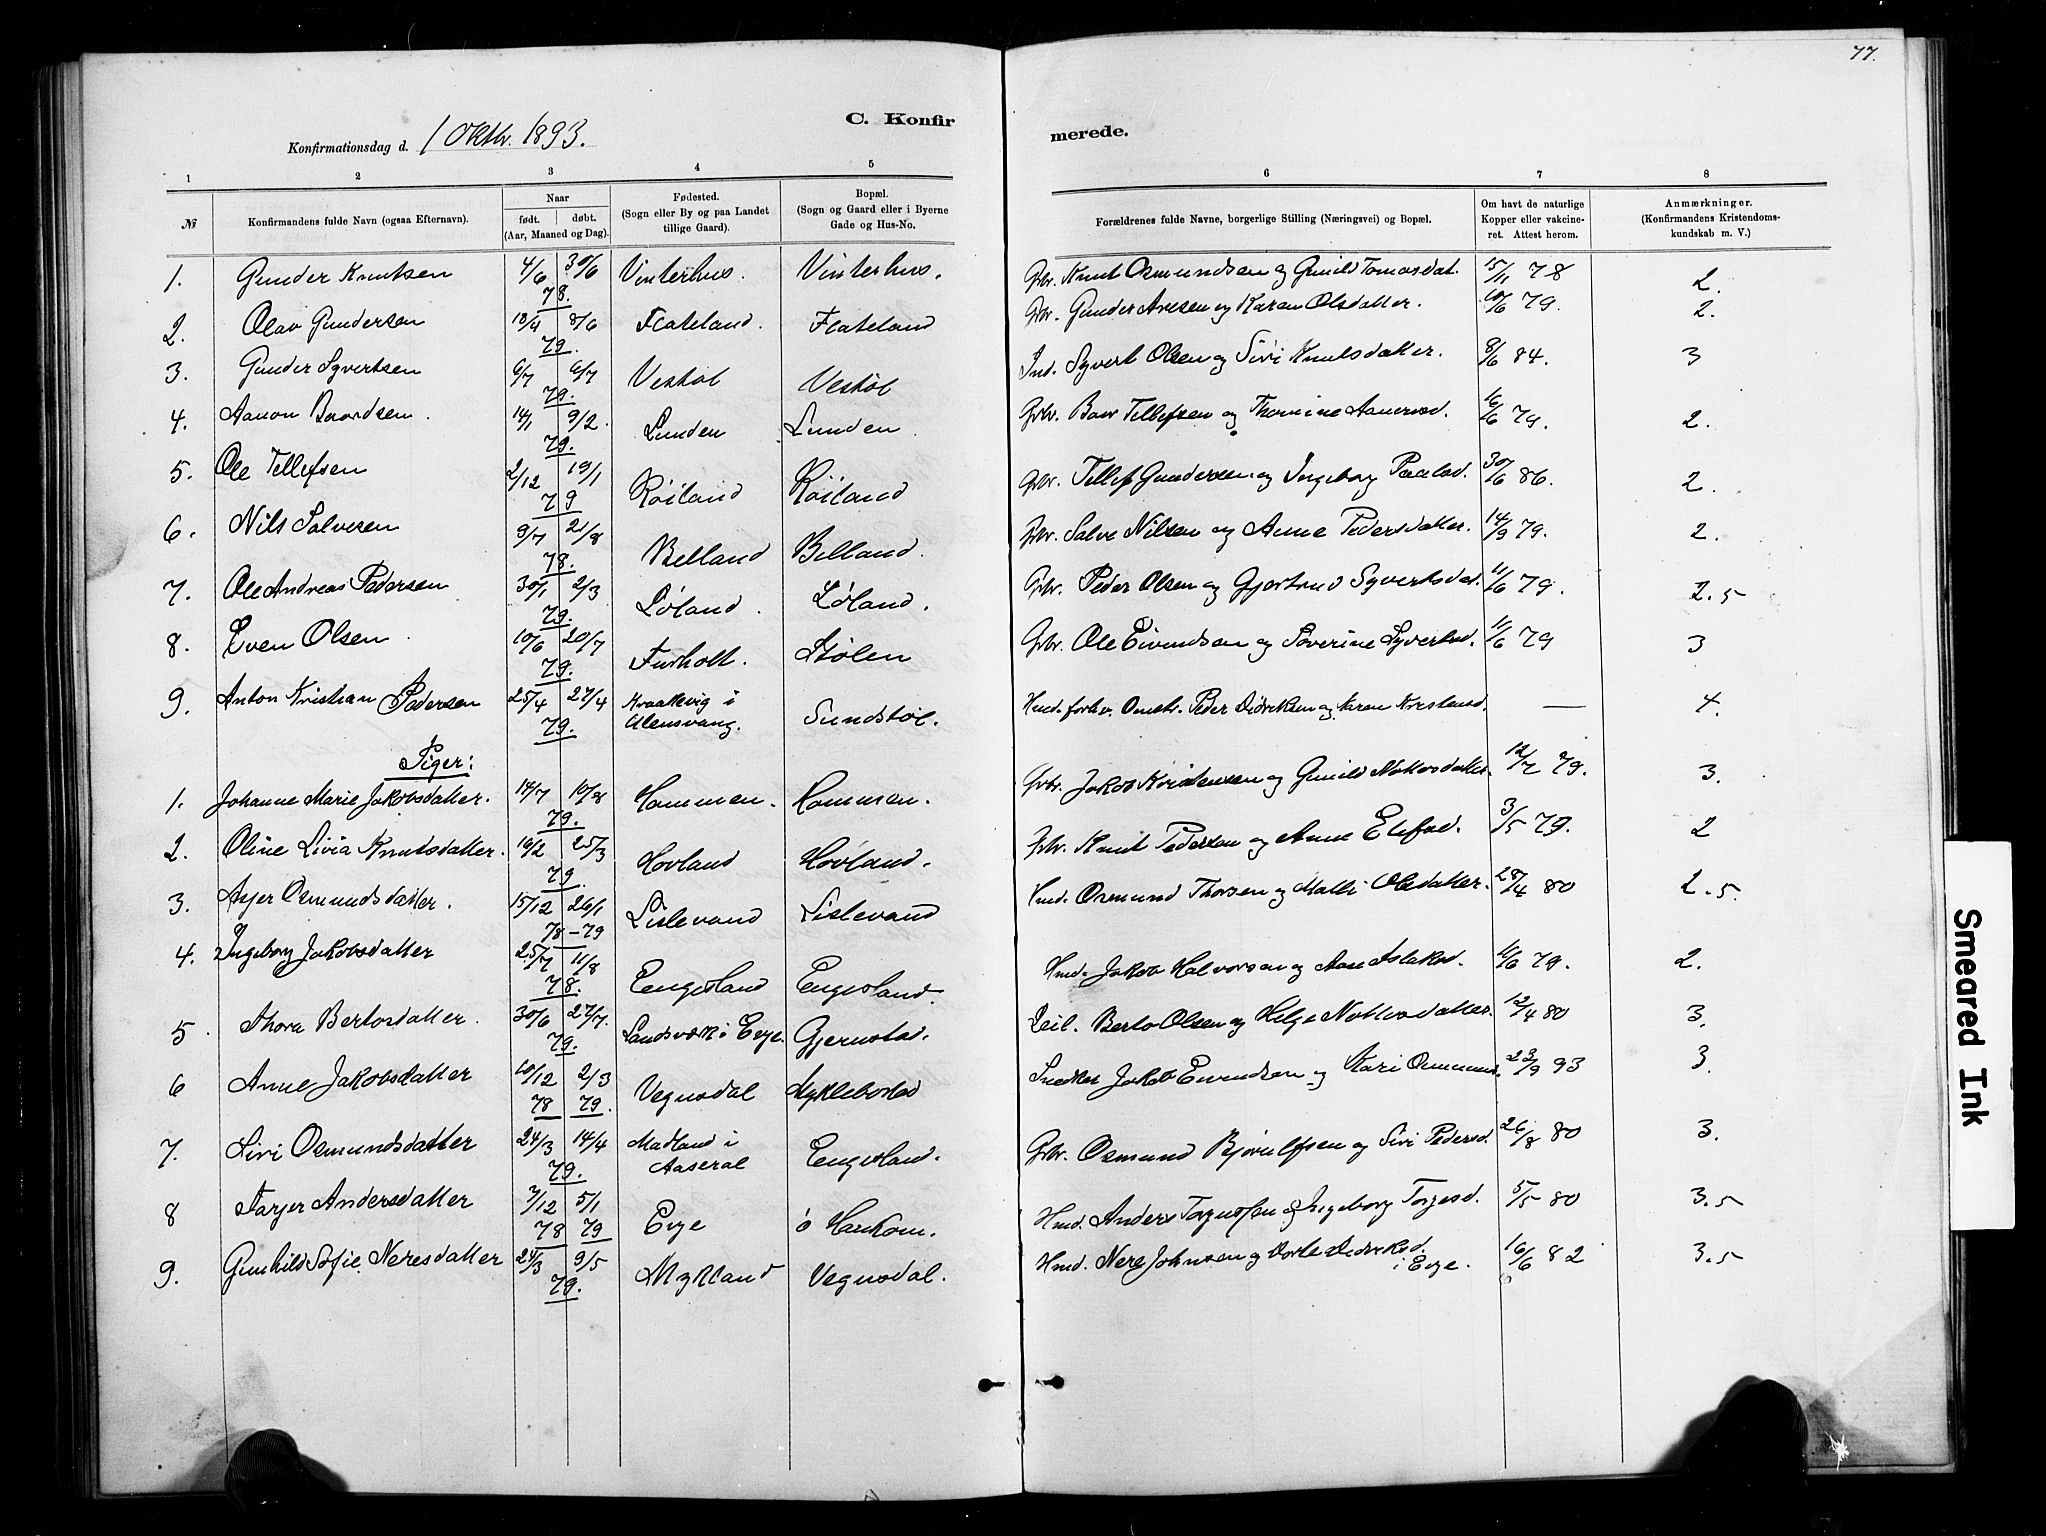 77.
C. Konfir
merede.
Konfirmationsdag d. 1 Oktbr. 1893.
1 2 3 4 5 6 7 8
№ Konfirmandens fulde Navn (ogsaa Efternavn). Naar født. døbt. (Aar, Maaned og Dag). Fødested. (Sogn eller By og paa Landet tillige Gaard). Bopæl. (Sogn og Gaard eller i Byerne Gade og Hus-No. Forældrenes fulde Navne, borgerlige Stilling (Næringsvei) og Bopæl. Om havt de naturlige Kopper eller vakcineret. Attest herom. Anmærkninger. (Konfirmandens Kristendomskundskab m. V.)
1. Gunder Knutsen 4/6 30/6 78. Vinterhus. Vinterhus. Gbr. Knut Osmundsen og Gunild Tomasdat. 15/11 78 2.
2. Olav Gundersen 18/4 8/6 79. Flateland. Flateland Gbr. Gunder Aresen og Karen Olsdatter. 10/6 79. 2.
3. Gunder Syvertsen 6/7 6/7 79. Vestøl Vestøl Ind. Syvert Olsen og Siri Knutsdatter. 8/6 84. 3
4. Aanon Baardsen. 14/1 9/2. 79. Lunden Lunden Gbr. Baar Tellefsen og Thomine Aanensd. 16/6 79. 2.
5. Ole Tellefsen 2/12 19/1 79 Røiland Røiland Gbr. Tellef Gundersen og Ingeborg Paalsd. 30/6 86. 2.
6. Nils Salvesen 9/7 21/8 78. Belland Belland. Gbr. Salve Nilsen og Anne Pedersdatter. 14/9 79. 2.
7. Ole Andreas Pedersen 30/1 2/3 79. Løland. Løland. Gbr. Peder Olsen og Gjertrud Syvertsdat. 11/6 79. 2.5
8. Even Olsen 10/6 20/7 79. Furholt. Stølen Gbr. Ole Eivindsen og Severine Syvertsd. 11/6 79 3
9. Anton Kristian Pedersen 25/4 27/4 79. Kraakevig i Ulensvang. Sundstøl. Hmd. forhv. Omstr. Peder Didriksen og Karen Kristensd. — 4.
Piger:
1. Johanne Marie Jakobsdatter. 14/7 10/8 79. Hommen. Hommen. Gbr. Jakob Kristensen og Gunild Nottosdatter. 12/7 79. 3.
2. Oline Livia Knutsdatter. 16/2 25/3 79. Hovland Hovland. Gbr. Knut Pedersen og Anne Elefsd. 3/5 79. 2
3. Asjer Osmundsdatter. 15/12 26/1 78-79 Lislevand Lislevand Hmd. Osmund Thorsen og Malli Olsdatter. 28/4 80 2.5.
4. Ingeborg Jakobsdatter 25/7 11/8 78. Engesland Engesland. Hmd. Jakob Halvorsen og Aase Aslaksd. 11/6 79. 2.
5. Thora Bertosdatter. 30/6 27/7. 79. Landsværk i Evje. Gjerustad. Leil. Berto Olsen og Helge Nottosdatter. 12/4 80 3.
6 Anne Jakobsdatter 10/12 2/3 78 79. Vegusdal Myklebostad Snedker Jakob Evendsen og Kari Osmunds. 23/9 93 3.
7. Sivi Osmundsdatter 24/3 14/4 79. Madland i Aaseral Engesland. Gbr. Osmund Bjørulfsen og Sivi Pedersd. 26/8 80 3.
8 Tarjer Andersdatter 7/12 5/1 78 79 Evje Haukom. Hmd. Anders Torjussen og Ingeborg Torjesd. 5/5 80 3.5
9. Gunhild Sofie Neresdatter 24/3 9/5 79. Mykland Vegusdal. Hmd. Nere Johnsen og Dorte Didriksd. i Evje. 16/6 82 3.5
Smeared Ink